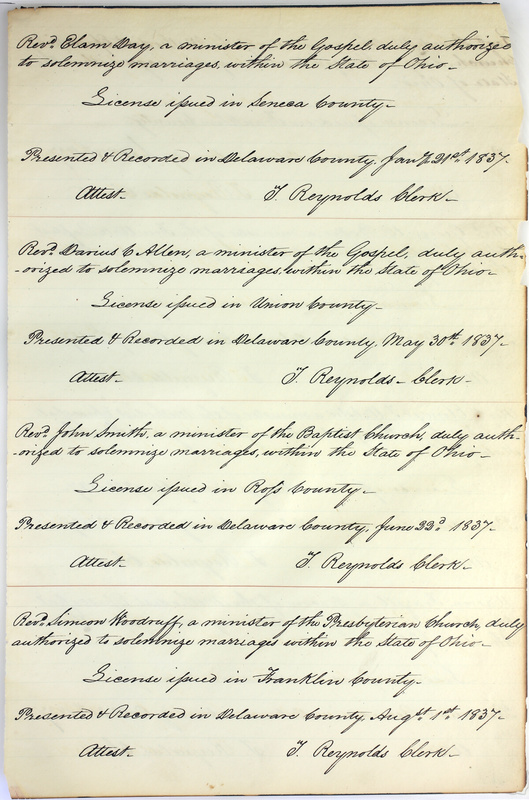 Rev.d Elam Day, a minister of the Gospel, duly authorized
to solemnize marriages, within the State of Ohio_
License issued in Seneca County_
Presented & Recorded in Delaware County, Jan'y 21st 1837_
Attest_ T. Reynolds Clerk_
Rev.d Darius C Allen, a minister of the Gospel, duly auth-
-orized to solemnize marriages, within the State of Ohio_
License issued in Union County_
Presented & Recorded in Delaware County, May 30th 1837_
Attest_ T. Reynolds_ Clerk_
Rev.d John Smith, a minister of the Baptist Church, duly auth-
-orized to solemnize marriages, within the State of Ohio_
License issued in Ross County_
Presented & Recorded in Delaware County, June 22d 1837_
Attest_ T. Reynolds Clerk_
Rev.d Simeon Woodruff, a minister of the Presbyterian Church, duly
authorized to solemnize marriages within the State of Ohio_
License issued in Franklin County_
Presented & Recorded in Delaware County, Augst 1st 1837_
Attest_ T. Reynolds Clerk_